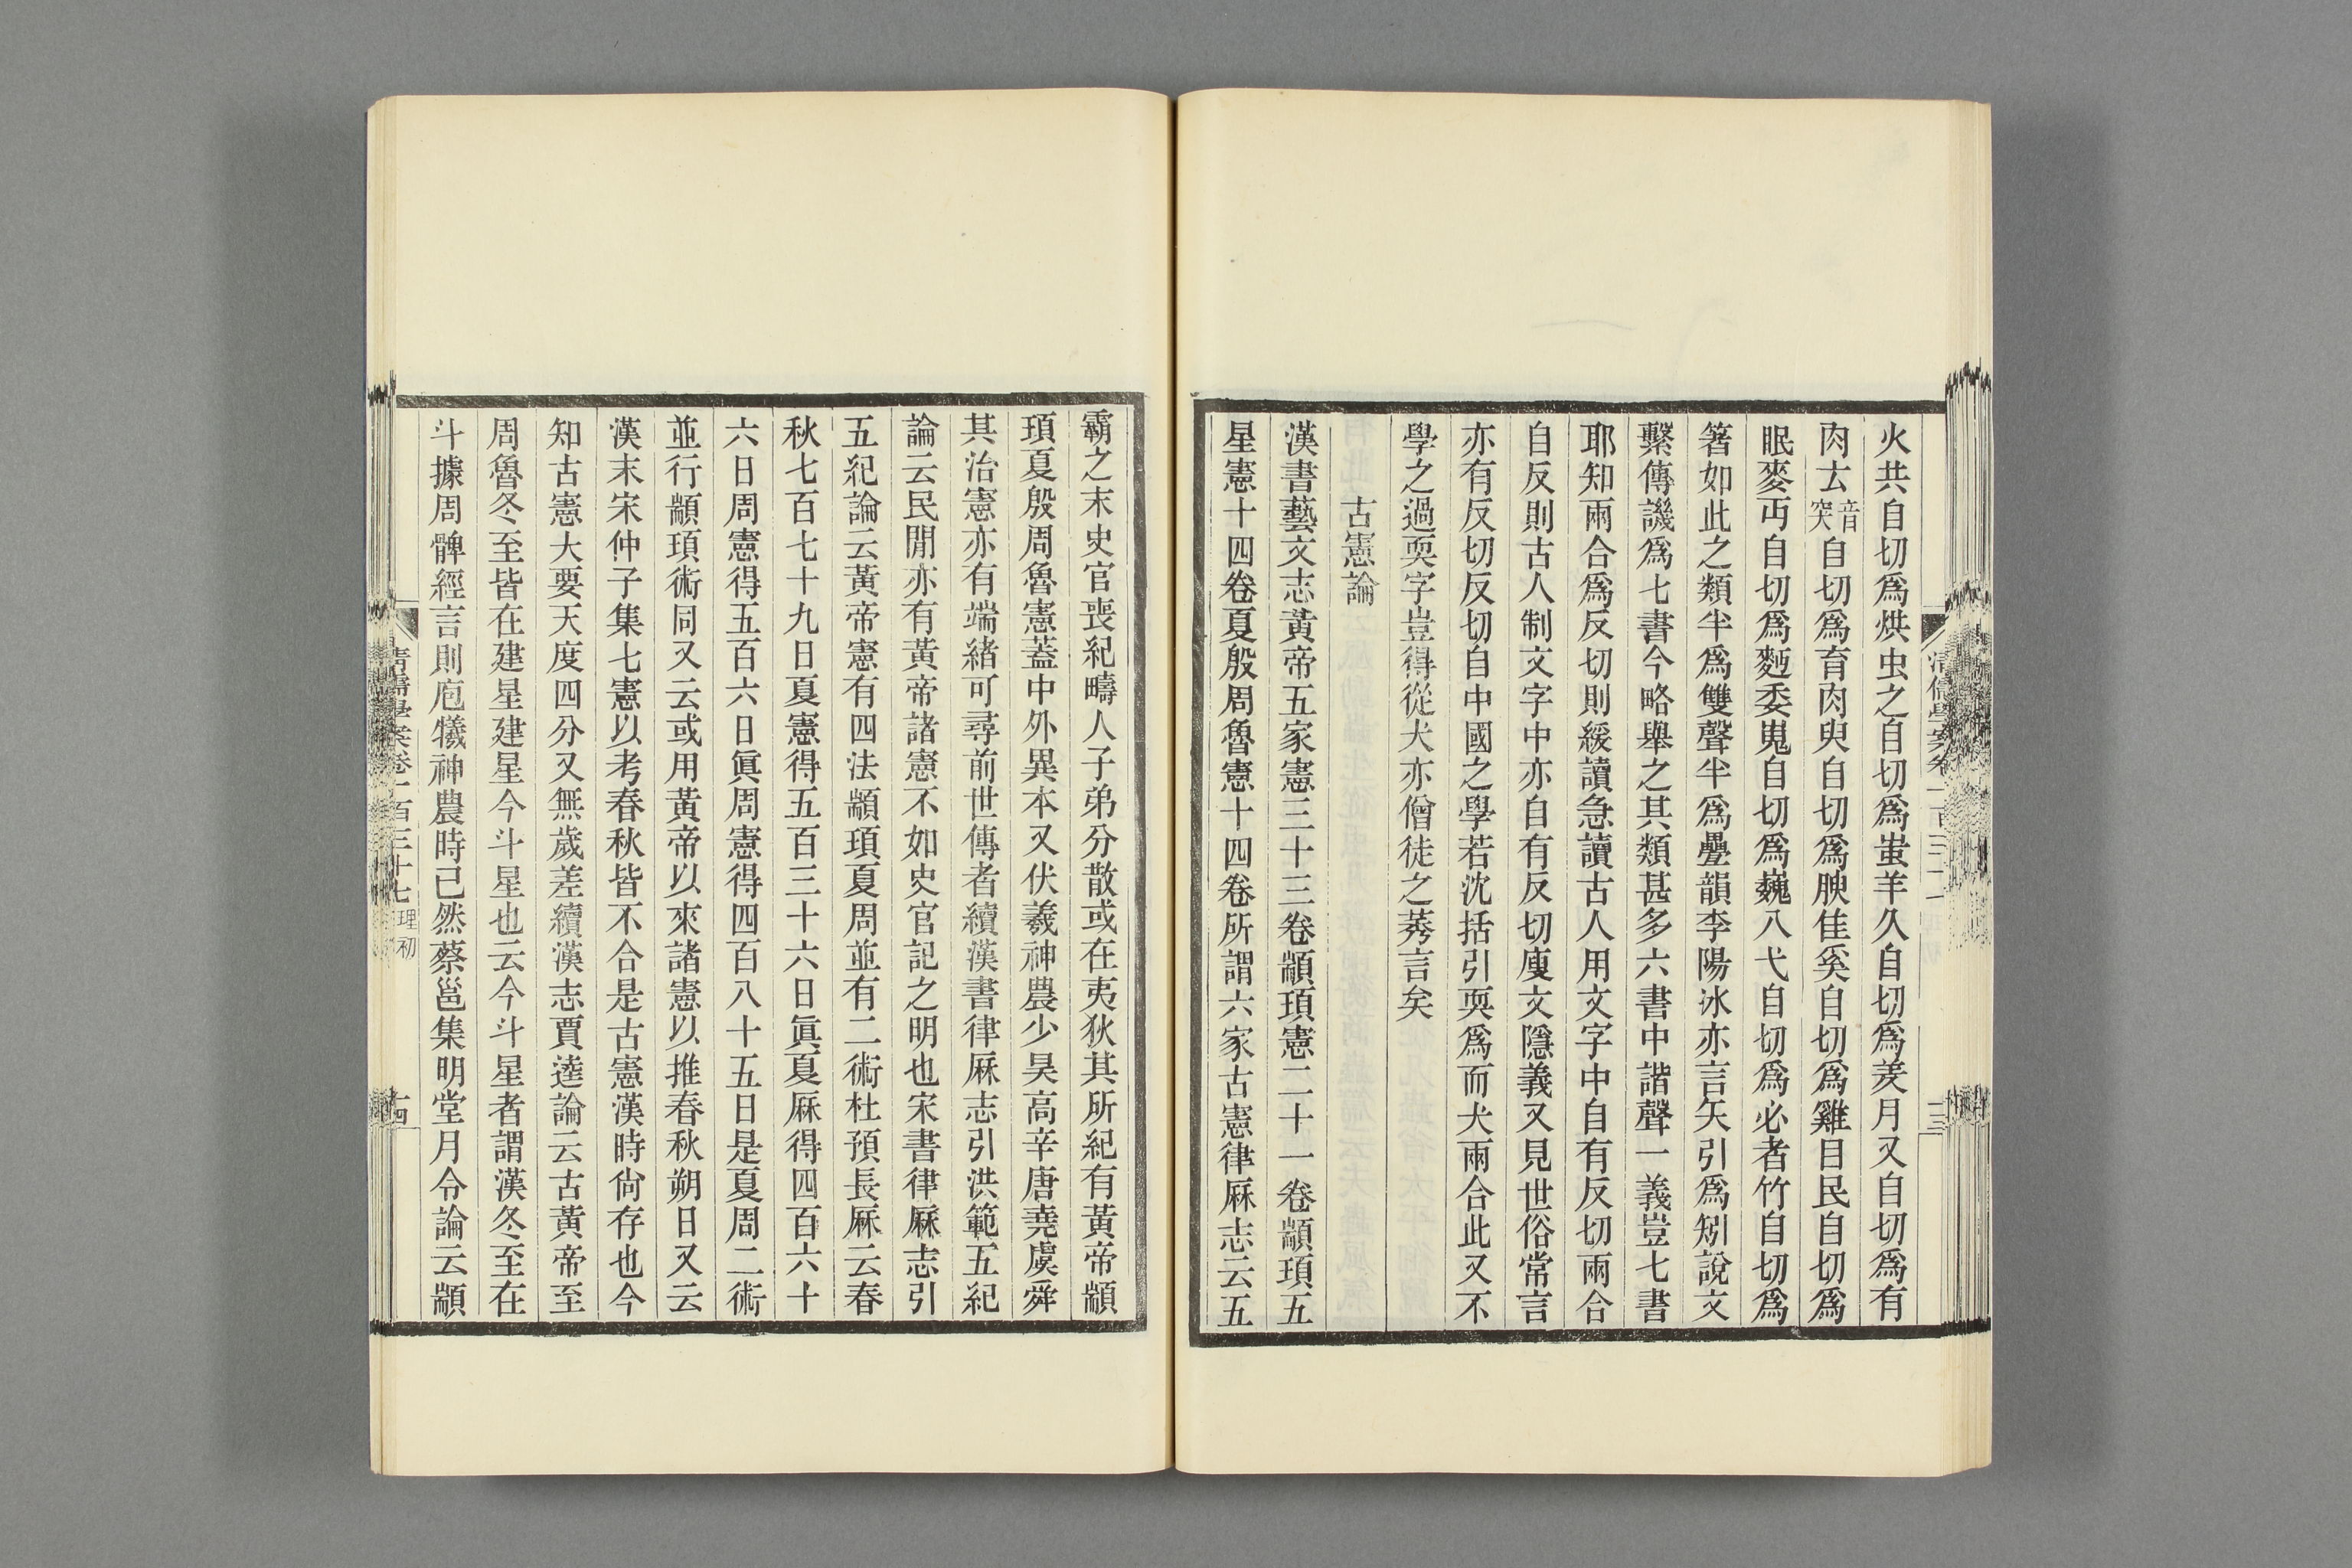 火共自切爲烘虫之自切爲蚩羊久自切爲羑月又自切爲有
肉𠫓音突自切爲育肉臾自切爲腴隹奚自切爲雞目民自切爲
眠麥丏自切爲麪委嵬自切爲巍八弋自切爲必者竹自切爲
箸如此之類半爲雙聲半爲疊韻李陽冰亦言矢引爲矧說文
繫傳譏爲七書今略舉之其類甚多六書中諧聲一義豈七書
耶知兩合爲反切則緩讀急讀古人用文字中自有反切兩合
自反則古人制文字中亦自有反切廋文隱義又見世俗常言
亦有反切反切自中國之學若沈括引耎爲而犬兩合此又不
學之過耎字豈得從犬亦僧徒之莠言矣
古憲論
漢書藝文志黃帝五家憲三十三卷顓頊憲二十一卷顓頊五
星憲十四卷夏殷周魯憲十四卷所謂六家古憲律厤志云五
清儒學案卷一百三十七
霸之末史官喪紀疇人子弟分散或在夷狄其所紀有黃帝顓
頊夏殷周魯憲蓋中外異本又伏羲神農少昊高辛唐堯虞舜
其治憲亦有端緒可尋前世傳者續漢書律厤志引洪範五紀
論云民閒亦有黃帝諸憲不如史官記之明也宋書律厤志引
五紀論云黃帝憲有四法顓頊夏周並有二術杜預長厤云春
秋七百七十九日夏憲得五百三十六日眞夏厤得四百六十
六日周憲得五百六日眞周憲得四百八十五日是夏周二術
並行顓頊術同又云或用黃帝以來諸憲以推春秋朔日又云
漢末宋仲子集七憲以考春秋皆不合是古憲漢時尙存也今
知古憲大要天度四分又無歲差續漢志賈逵論云古黃帝至
周魯冬至皆在建星建星今斗星也云今斗星者謂漢冬至在
斗據周髀經言則庖犧神農時已然蔡邕集明堂月令論云顓
清儒學案卷一百三十七 理初
十四